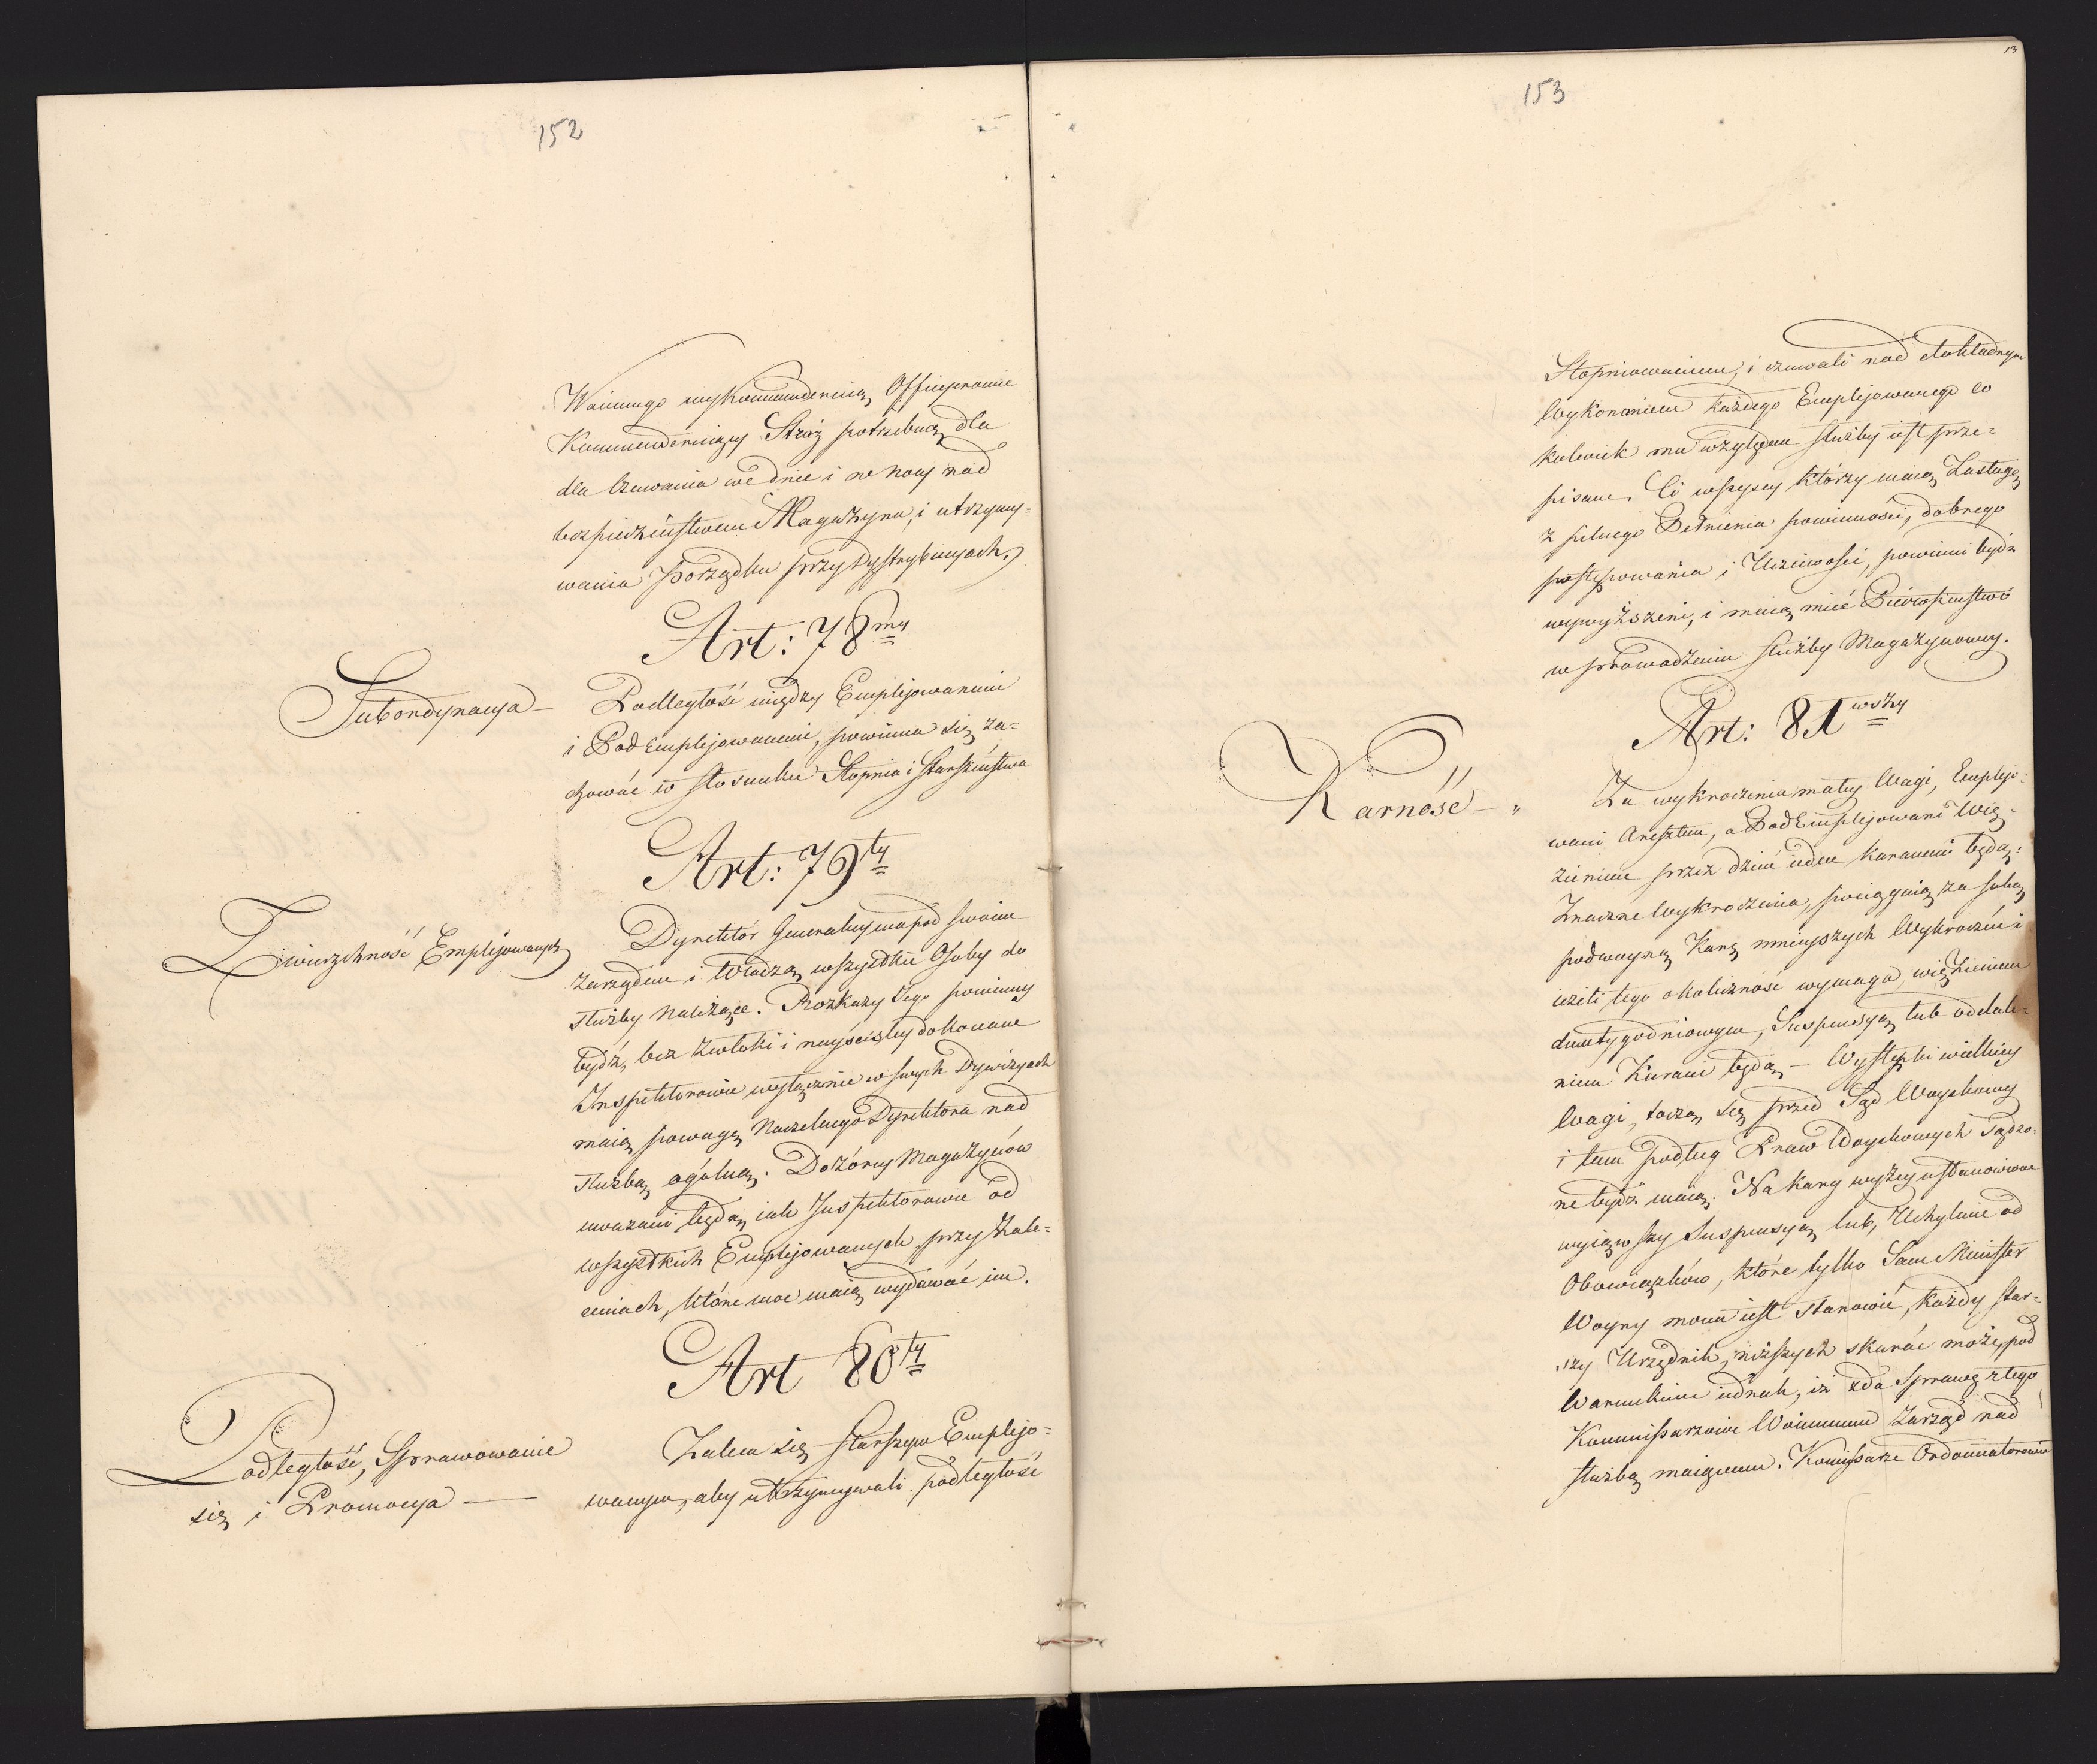 152
Woiennego wykommenderuią Officerowie
Kommenderuiący Straż potrzebną dla
dla Czuwania we dnie i w nocy nad
bezpieczeństwem Magazynu, i utrzymy=
wania Porządku przy Dystrybucyach.
Art: 78my
Subordynacya —
Podległość między Emplejowanemi
i Pod Emplejowanemi, powinna się za=
chować w stosunku Stopnia i Starszeństwa
Art: 79ty
Zwierzchność Emplejowanych
Dyrektór Generalny ma pod swoim
zarządem i Władzą wszystkie Osoby do
służby należące. Rozkazy Jego powinny
bydź, bez zwłoki i nayściśley dokonane
Inspektorowie wyłącznie w swych Dywizyach
maią powagę Naczelnego Dyrektora nad
służbą ogólną. Dozórcy Magazynów
uważani będą iak Inspektorowie od
wszystkich Emplejowanych przy Zale=
ceniach, które moc maią wydawać im.
Art 80ty
Podległość, Sprawowanie
się i Promocya —
Zaleca się Starszym Emplejo=
wanym, aby utrzymywali podległość
13
153
Stopniowaniem, i czuwali nad dokładnym
Wykonaniem każdego Emplejowanego co
kolwiek mu względem służby iest prze=
pisane. Ci wszyscy którzy maią Zasługę
z pilnego Pełnienia powinności, dobrego
postępowania i Uczciwości, powinni bydź
wywyższeni, i maią mieć Pierwszeństwo
w prowadzeniu służby Magazynowey.
Art: 81wszy
Karność —
Za wykroczenia małey Wagi, Emplejo=
wani Aresztem, a Pod Emplejowani Wię=
zieniem przez dzień ieden karanemi będą:
Znaczne Wykroczenia, pociągnią za sobą
podwoyną Karę mnieyszych Wykroczeń i
ieżeli tego okoliczność wymaga, więzieniem
dwutygodniowym, Suspensyą lub oddale=
niem Karani będą — Występki wielkiey
Wagi, toczą się przed Sąd Woyskowy
i tam podług Praw Woyskowych Sądzo=
ne bydź maią. Na kary wyżey ustanowione
wyiąwszy Suspensyą lub, Uchylenie od
Obowiązków, które tylko Sam Minister
Woyny mocen iest stanowić, każdy star=
szy Urzędnik, niższych skarać może, pod
Warunkiem iednak, iż zda Sprawę z tego
Kommissarzowi Woiennemu Zarząd nad
służbą maiącemu. Komissarze Ordonnatorowie